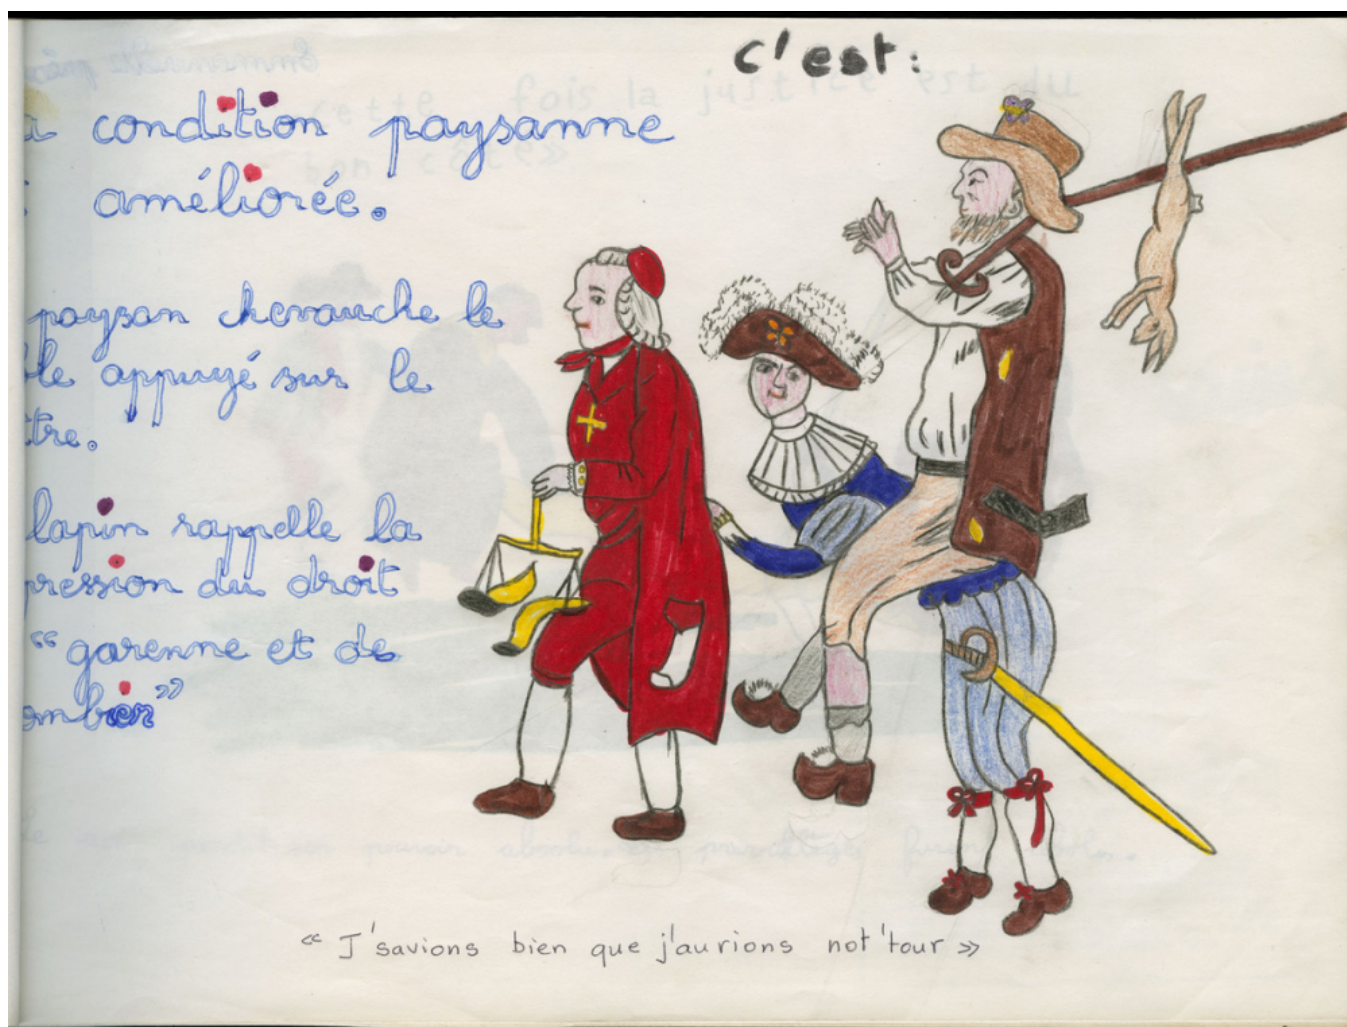 c'est:
cette fois la justice est du
bon côté»
a condition paysanne
améliorée.
paysan chevauche le
le appuyé sur le
tre.
lapin rappelle la
pression du droit
“garenne et de
ombier”
« J'savions bien que j'aurions not'tour »